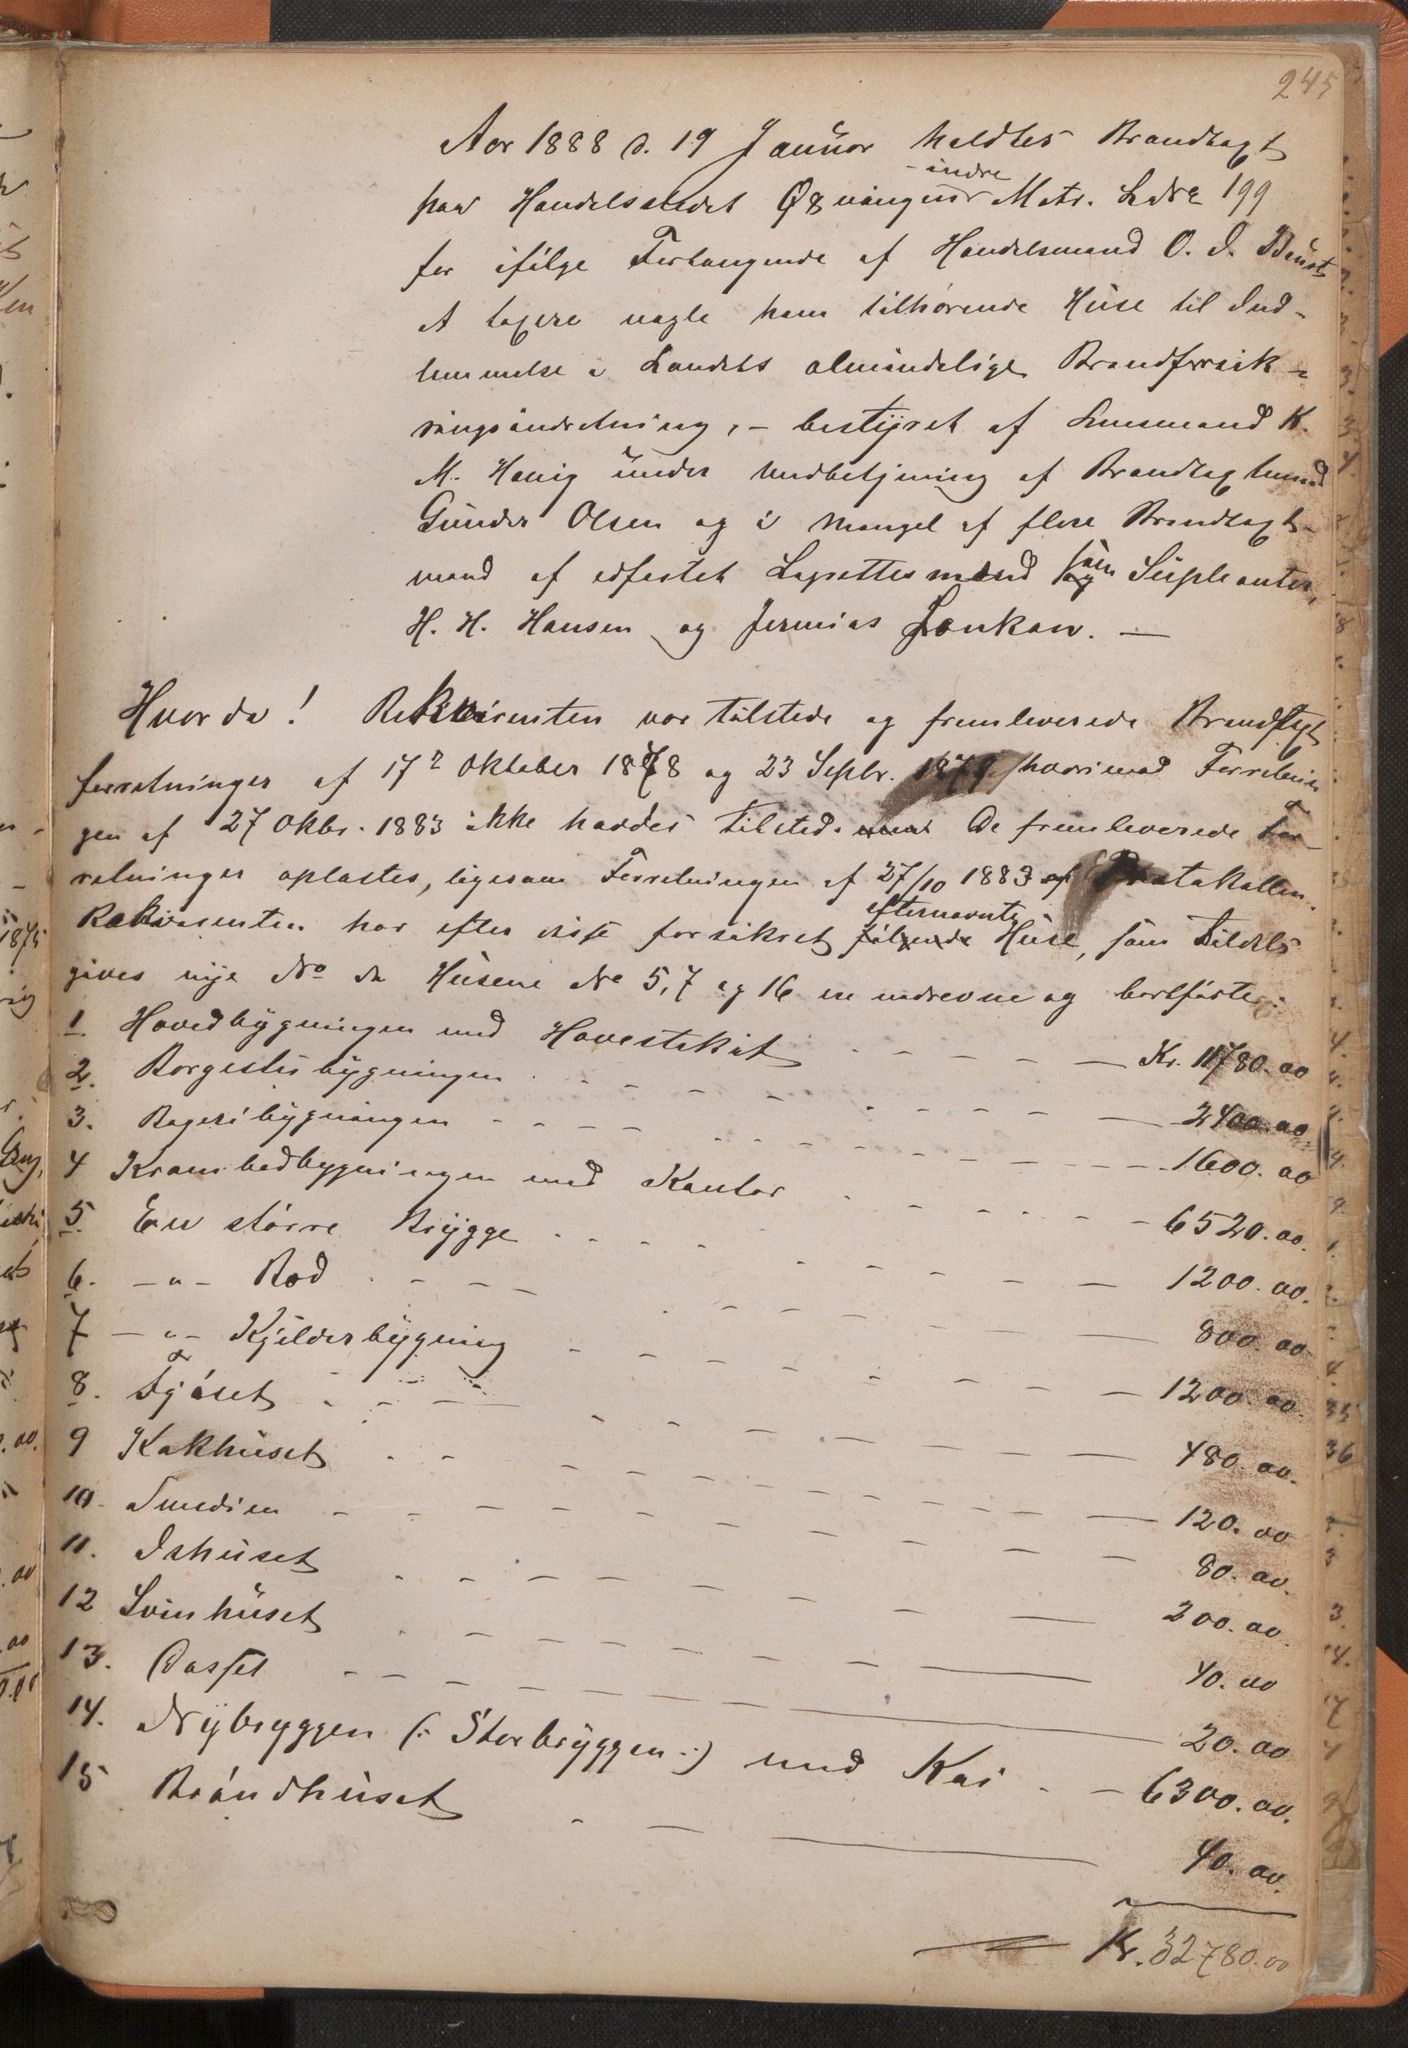 245
Aar 1888 d. 19 Januar holdtes Brandtaxt
paa Handelsstedet Øxvingen indre Matr. LdNe 199
for ifölge Forlangende af Handelsmand O. I.
at taxere nogle ham tilhörende Huse til Ind-
lemmelse i Landets almindelige Brandforsik-
ringsindretning, – bestyret af Lensmand K.
M. Havig under Medbetjening af Brandtaxtmand
Gunder Olsen og i Mangel af flere Brandtaxt-
mænd af edfæstet Lagrettesmænd som Supleanter,
H. H. Hansen og Jermias Lonkan. —
Hvorda! Rekvirenten var tilstede og fremleverede Brandtaxt
forretninger af 17de Oktober 1878 og 23 Septbr. 1879, hvorimod Forretnin
gen af 27 Oktbr. 1883 ikke havdes tilstede. De fremleverede For
retninger oplæstes, ligesom Forretningen af 27/10 1883 af Protokollen.
Rekvirenten har efter disse forsikret efternævnte Huse, som tildels
gives nye No da Husene No 5, 7 og 16 ere nedrevne og bortförte:
1. Hovedbygningen med Havestakit - - - - - Kr. 11780.00
2. Borgestuebygningen - - - - - 2400.00
3. Bageribygningen - - - - - 1600.00
4 Krambodbygningen med Kontor - - - - 6520.00
5. En större Brygge - - - - 1200.00
6. — " — Bod - - - - 800.00
7 — " — Kjelderbygning - - - - 1200.00
8. Fjöset - - - - 480.00
9 Kokhuset - - - - 120.00
10. Smedien - - - - 80.00
11. Ishuset - - - - 200.00
12 Svinhuset - - - - 40.00
13. Dasset - - - - 20.00
14. Nybryggen (: Storbryggen :) med Kai - - 6300.00
15 Bröndhuset - - - 40.00
Kr. 32780.00